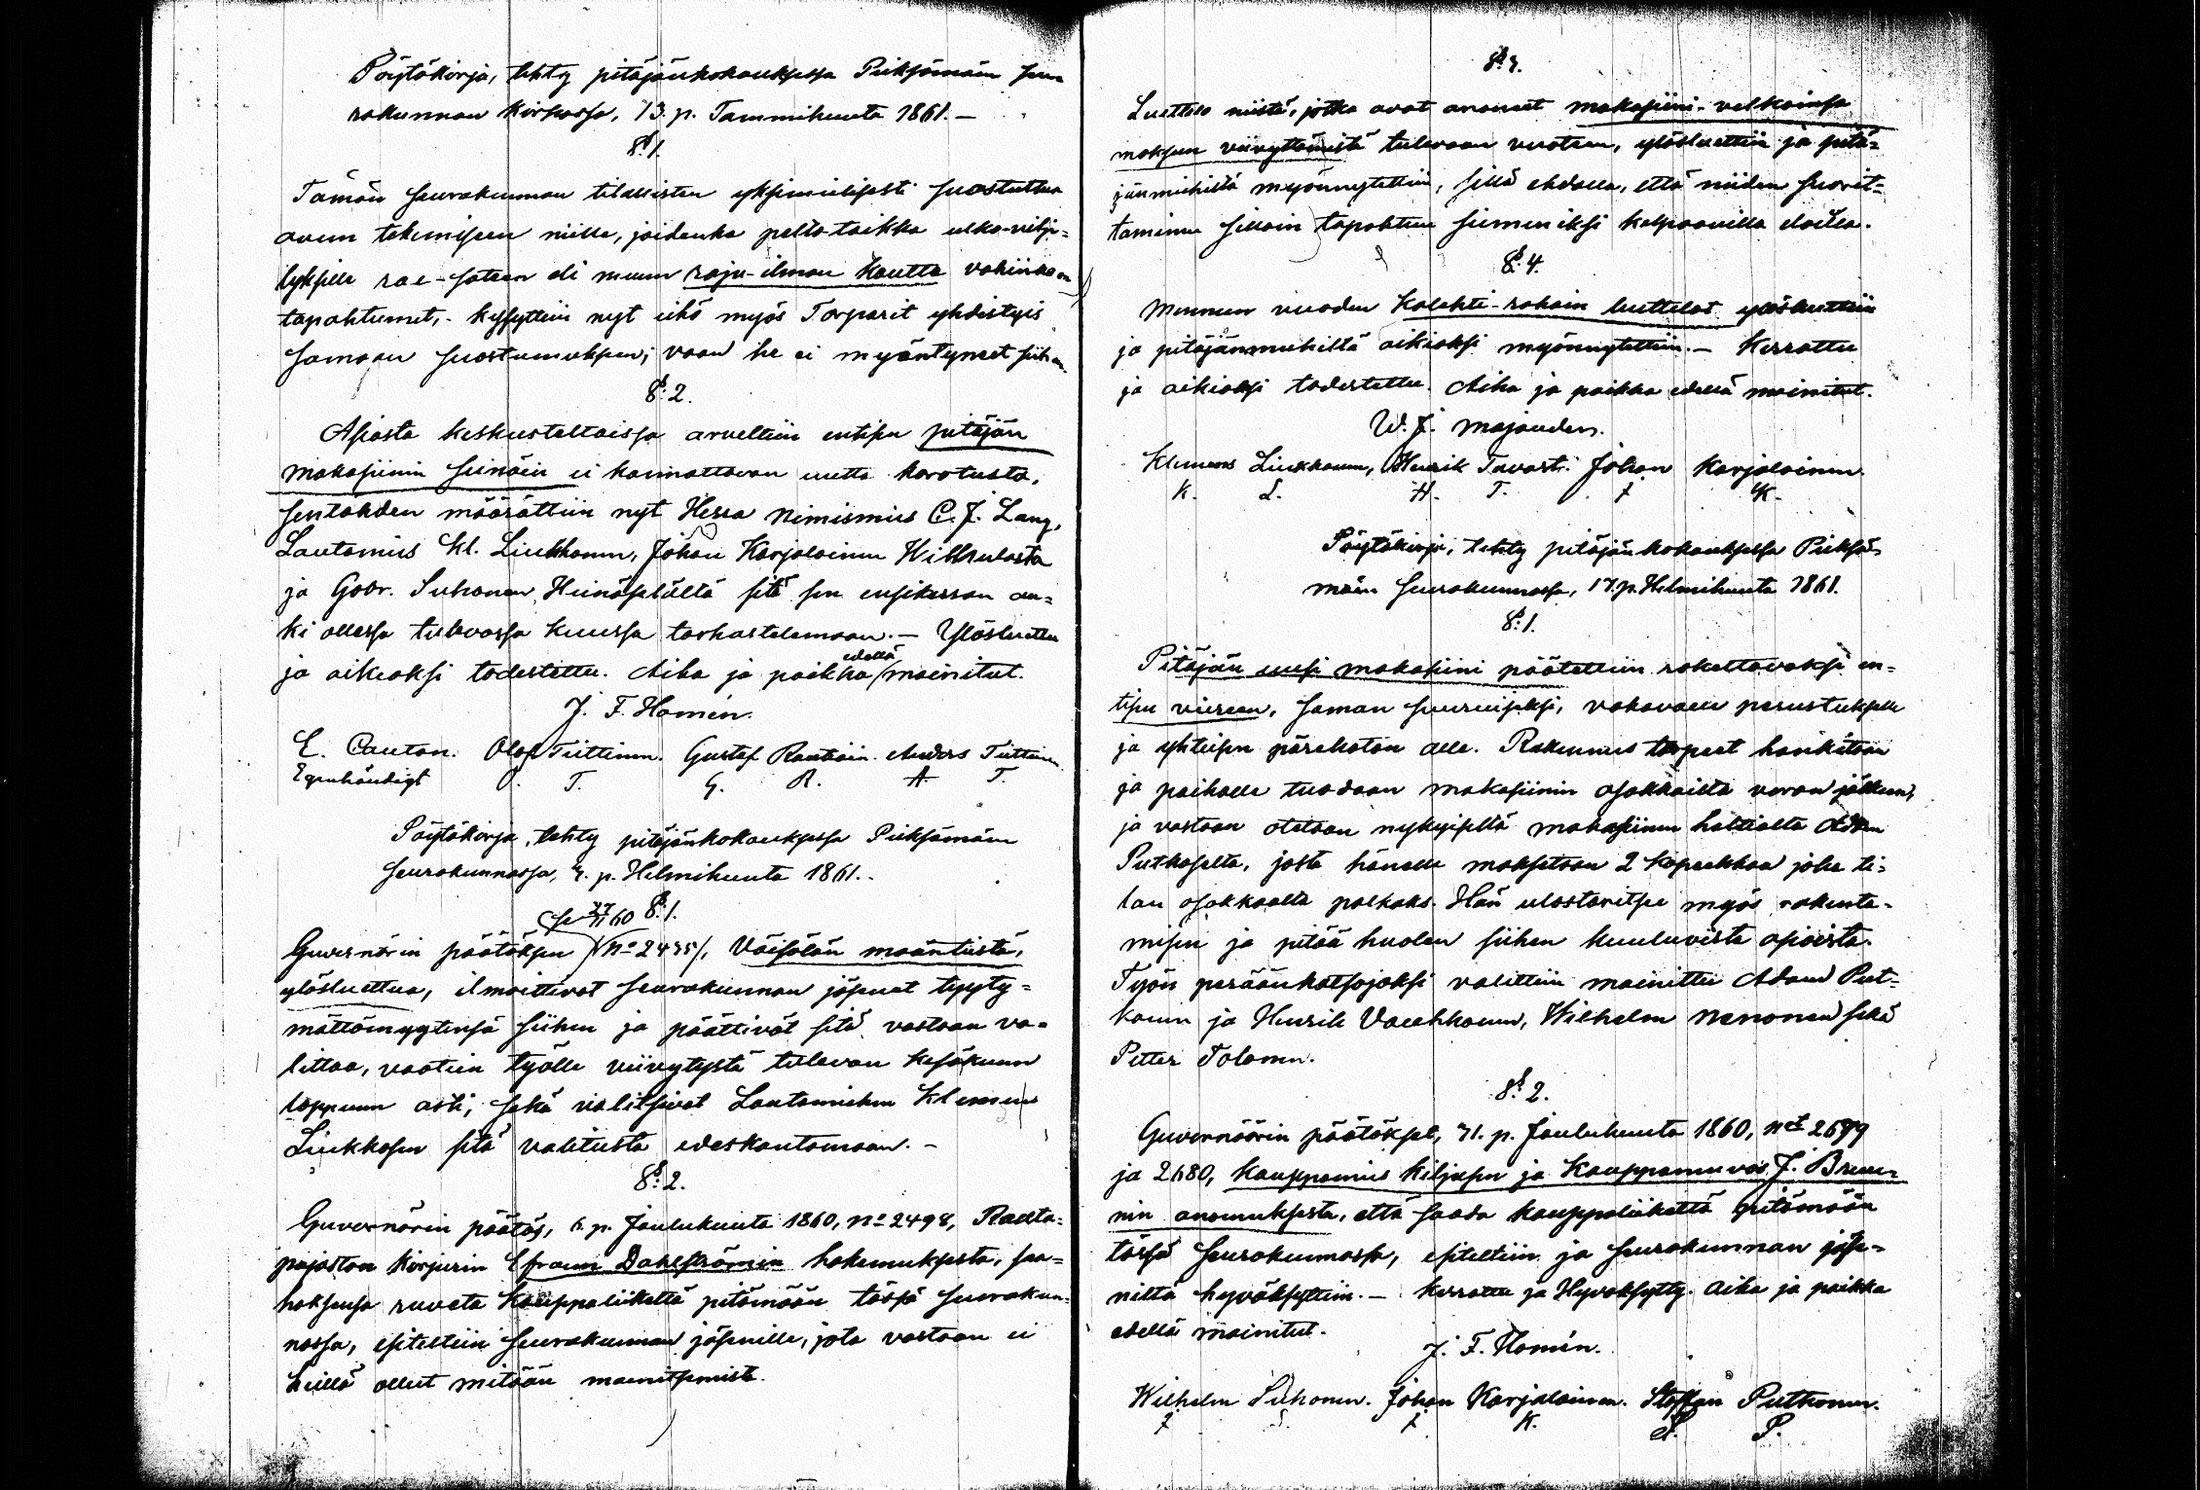 Pöytäkirja, tehty pitäjänkokouksessa Pieksämäen seu
rakunnan kirkossa, 13. p. Tammikuuta 1861. —
§ 1.
Tämän seurakunnan tilallisten yksimielisesti suostuttua
avun tekemiseen niille, joidenka pelto- taikka ulko-vilje-
lyksille rae-sateen eli muun raju-ilman kautta vahinkoa on
tapahtunut, - kysyttiin nyt eikö myös Torparit yhdistyis
samaan suostumukseen; vaan he ei myöntyneet siihen.
§ 2.
Asiasta keskusteltaissa arveltiin entisen pitäjän
makasiinin seinäin ei kannattavan uutta korotusta,
sentähden määrättiin nyt Herra Nimismies C. J. Lang,
Lautamies Kl. Liukkonen, Johan Karjalainen Wilhulasta
ja Gabr. Suhonen Heinäselältä sitä sen ensikerran au-
ki ollessa tulevassa kuussa tarkastelemaan. — Ylösluettu
ja oikeaksi todestettu. Aika ja paikka edellä mainitut.
J. F. Homén.
E. Canton. Olof Tiittinen. Gustaf Rautiain. Anders Tiittinen.
Egenhändigt O. T. G. R. A. T.
Pöytäkirja, tehty pitäjänkokouksessa Pieksämäen
seurakunnassa, 3. p. Helmikuuta 1861. -
§ 1.
27/11 60
Guvernörin päätöksen (No 2435), Väisälän maantiestä,
ylösluettua, ilmoittivat seurakunnan jäsenet tyyty-
mättömyytensä siihen ja päättivät sitä vastaan va-
littaa, vaatien työlle viivytystä tulevan kesäkuun
loppuun asti, sekä valitsivat Lautamiehen Klemens
Liukkosen sitä valitusta edeskantamaan. -
§ 2.
Guvernörin päätös, 6. p. Joulukuuta 1860, No 2498, Rauta-
pajaston kirjurin Efraim Dahlströmin hakemuksesta, saa-
daksensa ruveta kauppaliikettä pitämään tässä seurakun-
nassa, esiteltiin seurakunnan jäsenille, jota vastaan ei
heillä ollut mitään mainitsemista.
§ 3.
Luettelo niistä, jotka ovat anoneet makasiini-velkainsa
maksun viivyttämistä tulevaan vuoteen, ylösluettiin ja pitä-
jänmiehiltä myönnytettiin, sillä ehdolla, että niiden suorit-
taminen silloin tapahtuu siemeniksi kelpaavilla eloilla.
§ 4.
Mennen vuoden kolehti-rahain luettelot ylösluettiin
ja pitäjänmiehiltä oikiaksi myönnytettiin. — Kerrottu
ja oikiaksi todestettu. Aika ja paikka edellä mainitut.
W. J. Majander.
Klemens Liukkonen, Henrik Tavast. Johan Karjalainen.
K. L. H. T. J. K.
Pöytäkirja, tehty pitäjänkokouksessa Pieksä-
mäen seurakunnassa, 17. p. Helmikuuta 1861.
§ 1.
Pitäjän uusi makasiini päätettiin rakettavaksi en-
tisen viereen, saman suuruiseksi, vakavalle perustukselle
ja yhteisen pärekaton alle. Rakennus tarpeet hankitaan
ja paikalle tuodaan makasiinin osakkailta varan jälkeen,
ja vastaan otetaan nykyiseltä makasiinin haltialta Adam
Putkoselta, josta hänelle maksetaan 2 kopeekkaa joka ti-
lan osakkaalta palkaks. Hän ulostoritsee myös rakenta-
misen ja pitää huolen siihen kuuluvista asioista.
Työn peräänkatsojaksi valittiin mainittu Adam Put-
konen ja Henrik Vauhkonen, Wilhelm Nenonen sekä
Petter Tolonen.
§ 2.
Guvernöörin päätökset, 31. p. Joulukuuta 1860, No 2679
ja 2680, kauppamies Kiljusen ja Kauppamiehen J. Bruu-
nin anomuksesta, että saada kauppaliikettä pitämään
tässä seurakunnassa, esiteltiin ja seurakunnan jäse-
niltä hyväksyttiin. — Kerrottu ja Hyväksytty. Aika ja paikka
edellä mainitut.
J. F. Homén.
Wilhelm Suhonen. Johan Karjalainen. Staffan Putkonen.
J. K. S. P.